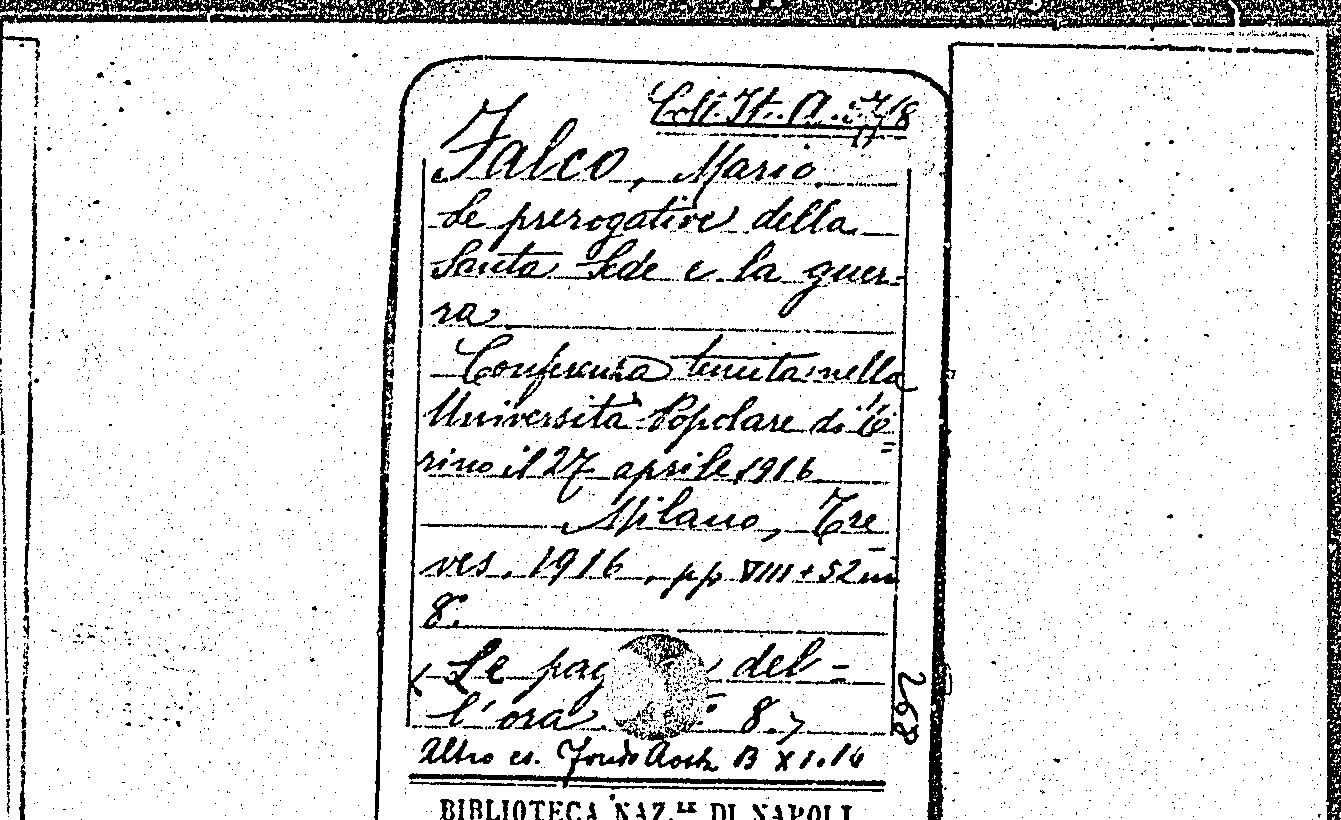 Coll. It. A. 57/8
Falco, Mario
Le prerogative della
Santa Sede e la guer-
ra
Conferenza tenuta nella
Università Popolare di To=
rino il 27 aprile 1916
Milano, Tre
ves. 1916, pp VIII+52 in
8.
(Le pag del=
l'ora. 8.)
268
Altro es. Fondo Aosta B XI.14
BIBLIOTECA NAZ.LE DI NAPOLI